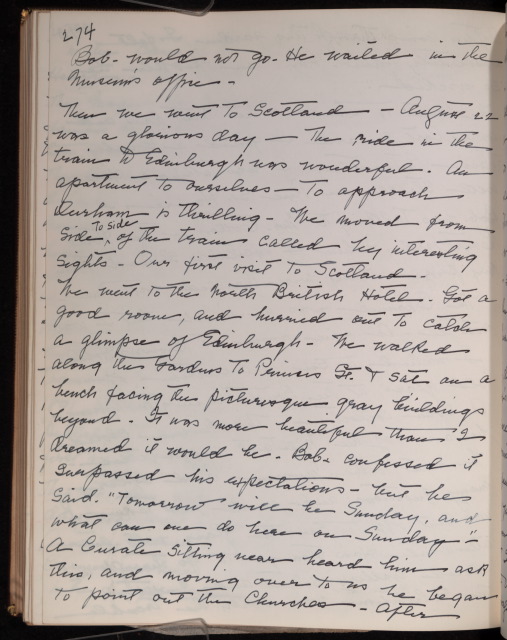 274
Bob - would not go. He waited in the
Museum's office -
Then we went to Scotland - August 22
was a glorious day - The ride in the
train to Edinburgh was wonderful. An
apartment to ourselves - To approach
Durham is thrilling - We moved from
side to side, of the train called by interesting
sights - Our first visit to Scotland -
We went to the North British Hotel - Got a
good room, and hurried out to catch
a glimpse of Edinburgh - We walked
along the Gardens to Princes St. & sat on a
bench facing the picturesque gray buildings
beyond - It was more beautiful than I
dreamed it would be - Bob - confessed it
surpassed his expectations - but he
said. "Tomorrow will be Sunday, and
what can one do here on Sunday" -
A Curate sitting near heard him ask
this, and moving over to us he began
to point out the Churches - After